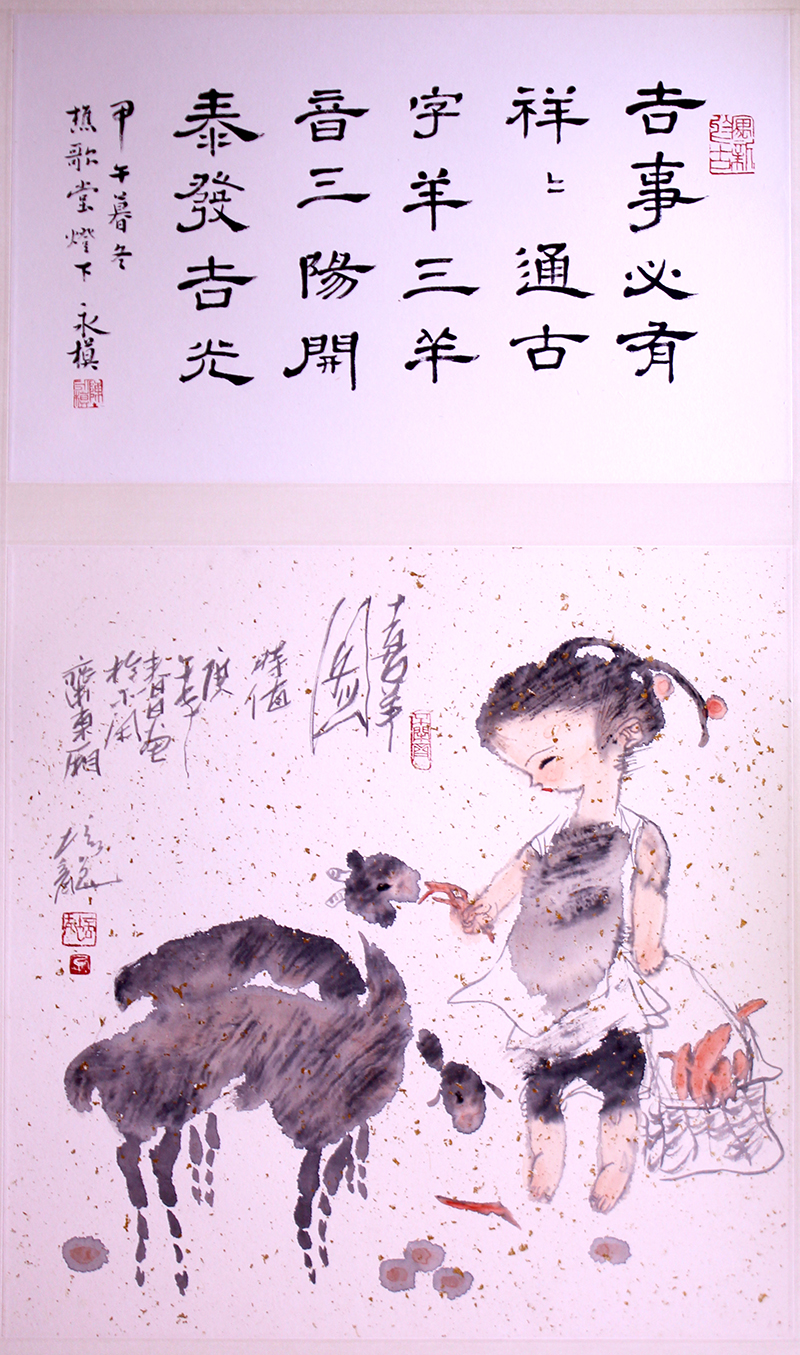 吉事必有
祥〻通古
字羊三羊
音三陽開
泰發吉光
甲午暮冬
樵歌堂燈下 永模
喜羊
圖
值
庚
年
春日畫
於不閑
齋東廂